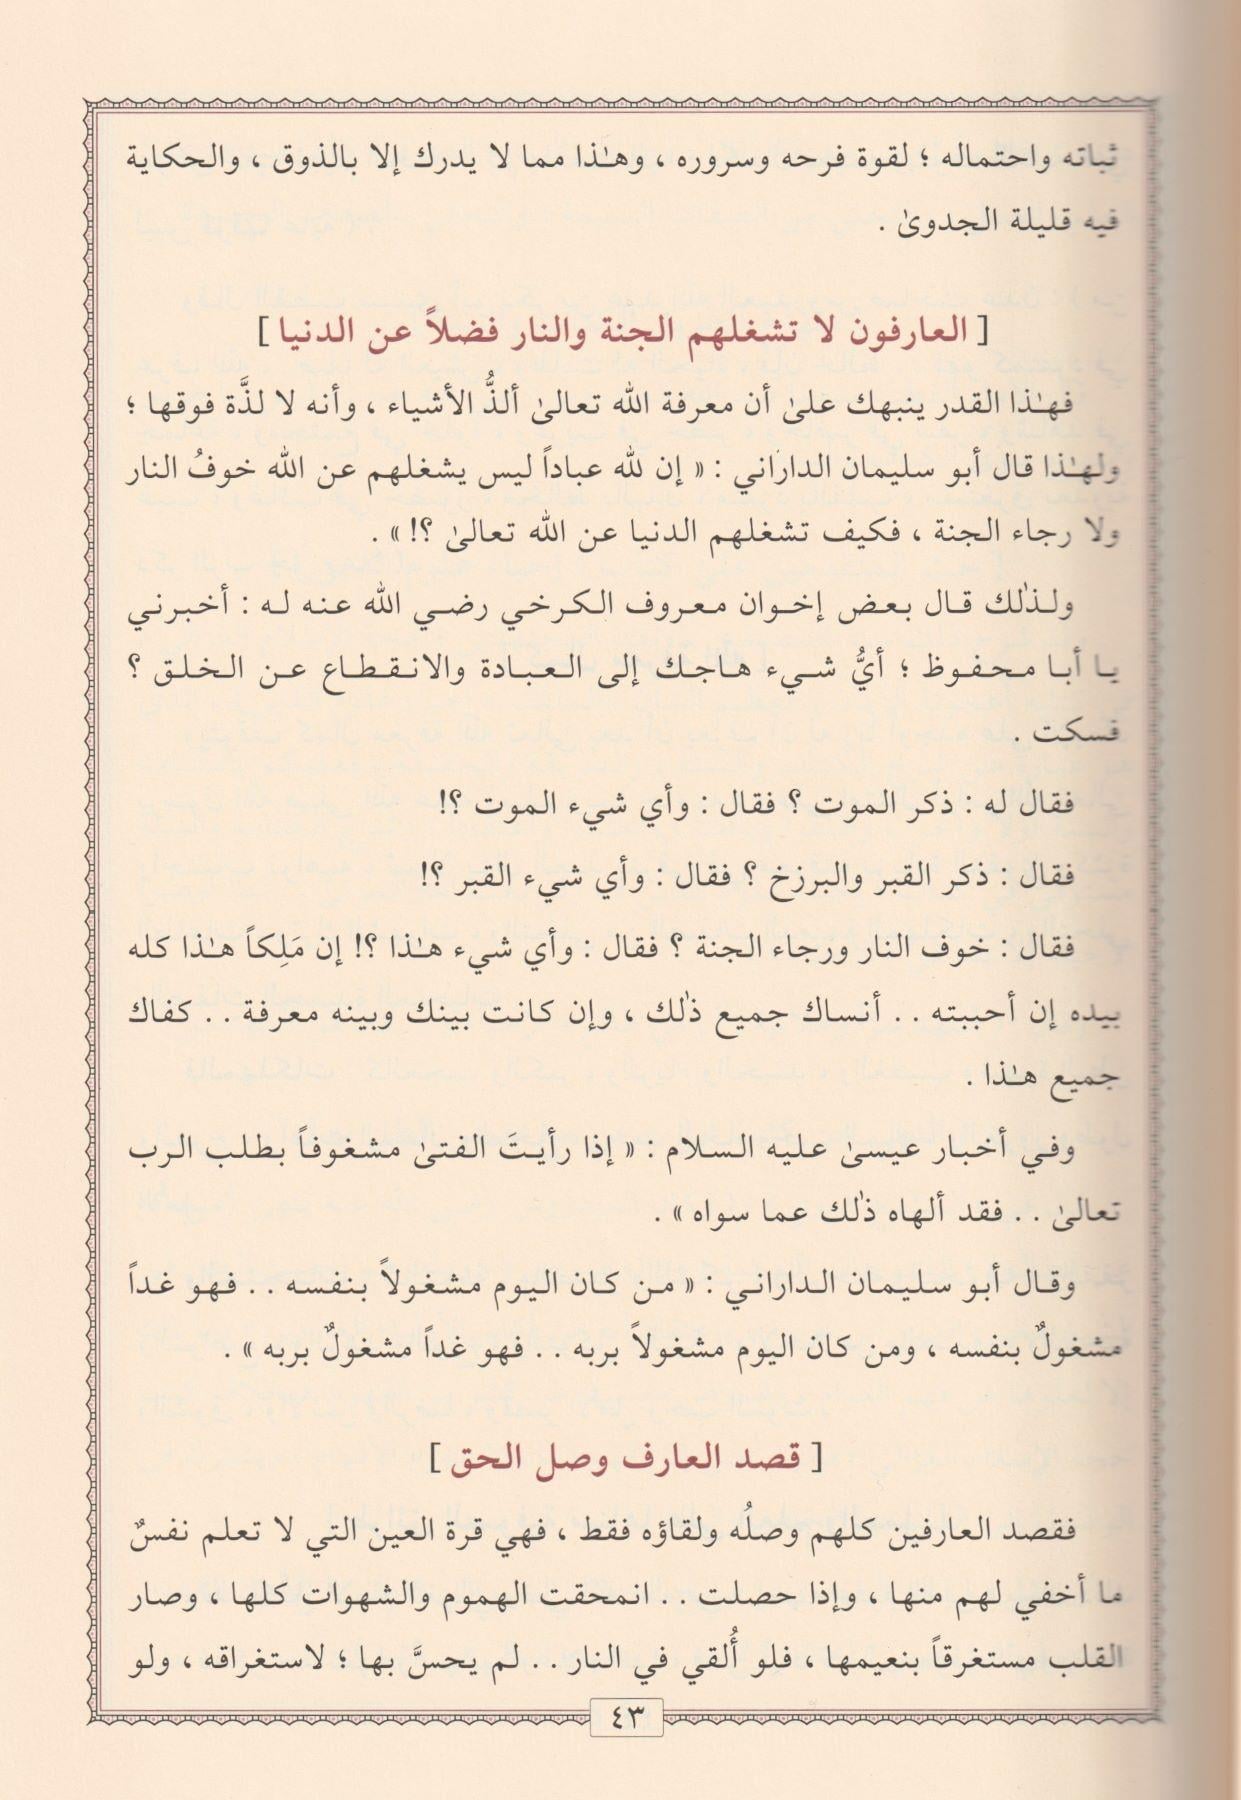 ثباته واحتماله ؛ لقوة فرحه وسروره ، وهـٰذا مما لا يدرك إلا بالذوق ، والحكاية
فيه قليلة الجدوىٰ .
[ العارفون لا تشغلهم الجنة والنار فضلاً عن الدنيا ]
فهـٰذا القدر ينبهك علىٰ أن معرفة الله تعالىٰ ألذُّ الأشياء ، وأنه لا لذَّة فوقها ؛
ولهـٰذا قال أبو سليمان الداراني : « إن لله عباداً ليس يشغلهم عن الله خوفُ النار
ولا رجاء الجنة ، فكيف تشغلهم الدنيا عن الله تعالىٰ ؟! » .
ولذٰلك قال بعض إخوان معروف الكرخي رضي الله عنه له : أخبرني
يا أبا محفوظ ؛ أيُّ شيء هاجك إلى العبادة والانقطاع عن الخلق ؟
فسكت .
فقال له : ذكر الموت ؟ فقال : وأي شيء الموت ؟!
فقال : ذكر القبر والبرزخ ؟ فقال : وأي شيء القبر ؟!
فقال : خوف النار ورجاء الجنة ؟ فقال : وأي شيء هـٰذا ؟! إن مَلِكاً هـٰذا كله
بيده إن أحببته . . أنساك جميع ذٰلك ، وإن كانت بينك وبينه معرفة . . كفاك
جميع هـٰذا .
وفي أخبار عيسىٰ عليه السلام : « إذا رأيتَ الفتىٰ مشغوفاً بطلب الرب
تعالىٰ . . فقد ألهاه ذٰلك عما سواه » .
وقال أبو سليمان الداراني : « من كان اليوم مشغولاً بنفسه . . فهو غداً
مشغولٌ بنفسه ، ومن كان اليوم مشغولاً بربه . . فهو غداً مشغولٌ بربه » .
[ قصد العارف وصل الحق ]
فقصد العارفين كلهم وصلُه ولقاؤه فقط ، فهي قرة العين التي لا تعلم نفسٌ
ما أخفي لهم منها ، وإذا حصلت . . انمحقت الهموم والشهوات كلها ، وصار
القلب مستغرقاً بنعيمها ، فلو أُلقي في النار . . لم يحسَّ بها ؛ لاستغراقه ، ولو
٤٣